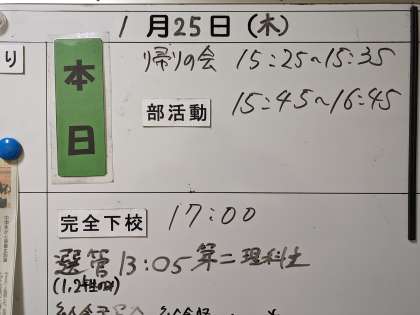 1月25日(木)
り
本日
帰りの会 15:25~15:35
部活動 15:45~16:45
完全下校 17:00
選管 13:05 第二理科室
(1,2年生のみ)